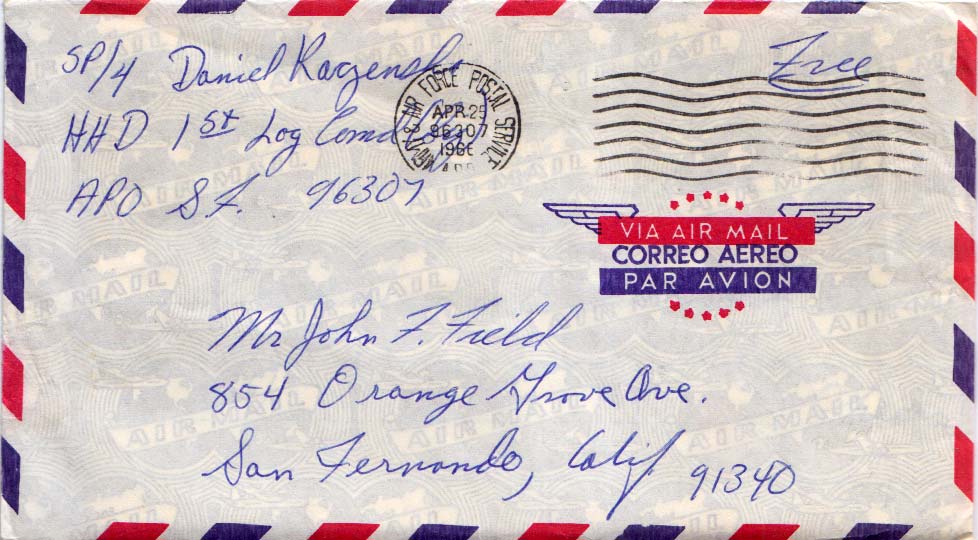 SP/4 Daniel Kaczenski
HHD 1st Log Comd
APO S.F. 96307
Free
ARMY & AIR FORCE POSTAL SERVICE
APR 25
96307
1966
APO
VIA AIR MAIL
CORREO AEREO
PAR AVION
Mr John F. Field
854 Orange Grove Ave.
San Fernando, Calif 91340